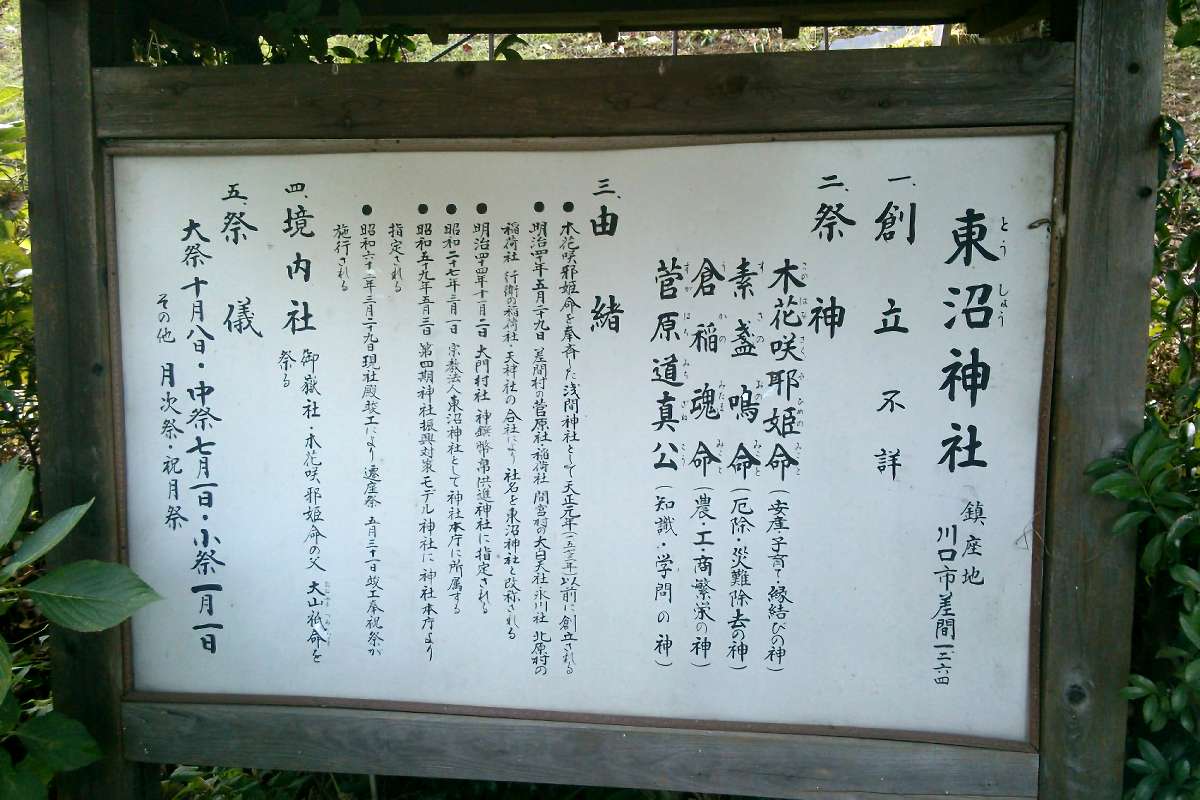 東沼神社
とうしょう
鎮座地
川口市差間一-三-六四
一、創立不詳
二、祭神
木花咲耶姫命(安産子育て・縁結びの神)
このはなさくやひめのみこと
素盞嗚命(厄除・災難除去の神)
すさのおのみこと
倉稲魂命(農・工・商繁栄の神)
うかのみたまみこと
菅原道真公(知識・学問の神)
すがはらみちざねこう
三、由緒
●木花咲耶姫命を奉斉した浅間神社として天正元年(一五七三年)以前に創立される
●明治四年五月二十九日 差間村の菅原社・稲荷社 間宮村の大白天社・氷川社 北原村の
稲荷社 行衛の稲荷社・天神社の合社により 社名を東沼神社と改称される
●明治四十四年十一月二日 大門村社 神饌幣帛供進神社に指定される
●昭和二十七年三月一日 宗教法人東沼神社として神社本庁に所属する
●昭和五十九年五月三日 第四期神社振興対策モデル神社に 神社本庁より
指定される
●昭和六十二年三月二十九日現社殿竣工により 遷座祭 五月三十一日竣工奉祝祭が
施行される
四、境内社
御嶽社・木花咲耶姫命の父 大山祇命を
祭る
五、祭儀
大祭十月八日・中祭七月一日・小祭一月一日
その他 月次祭・祝月祭